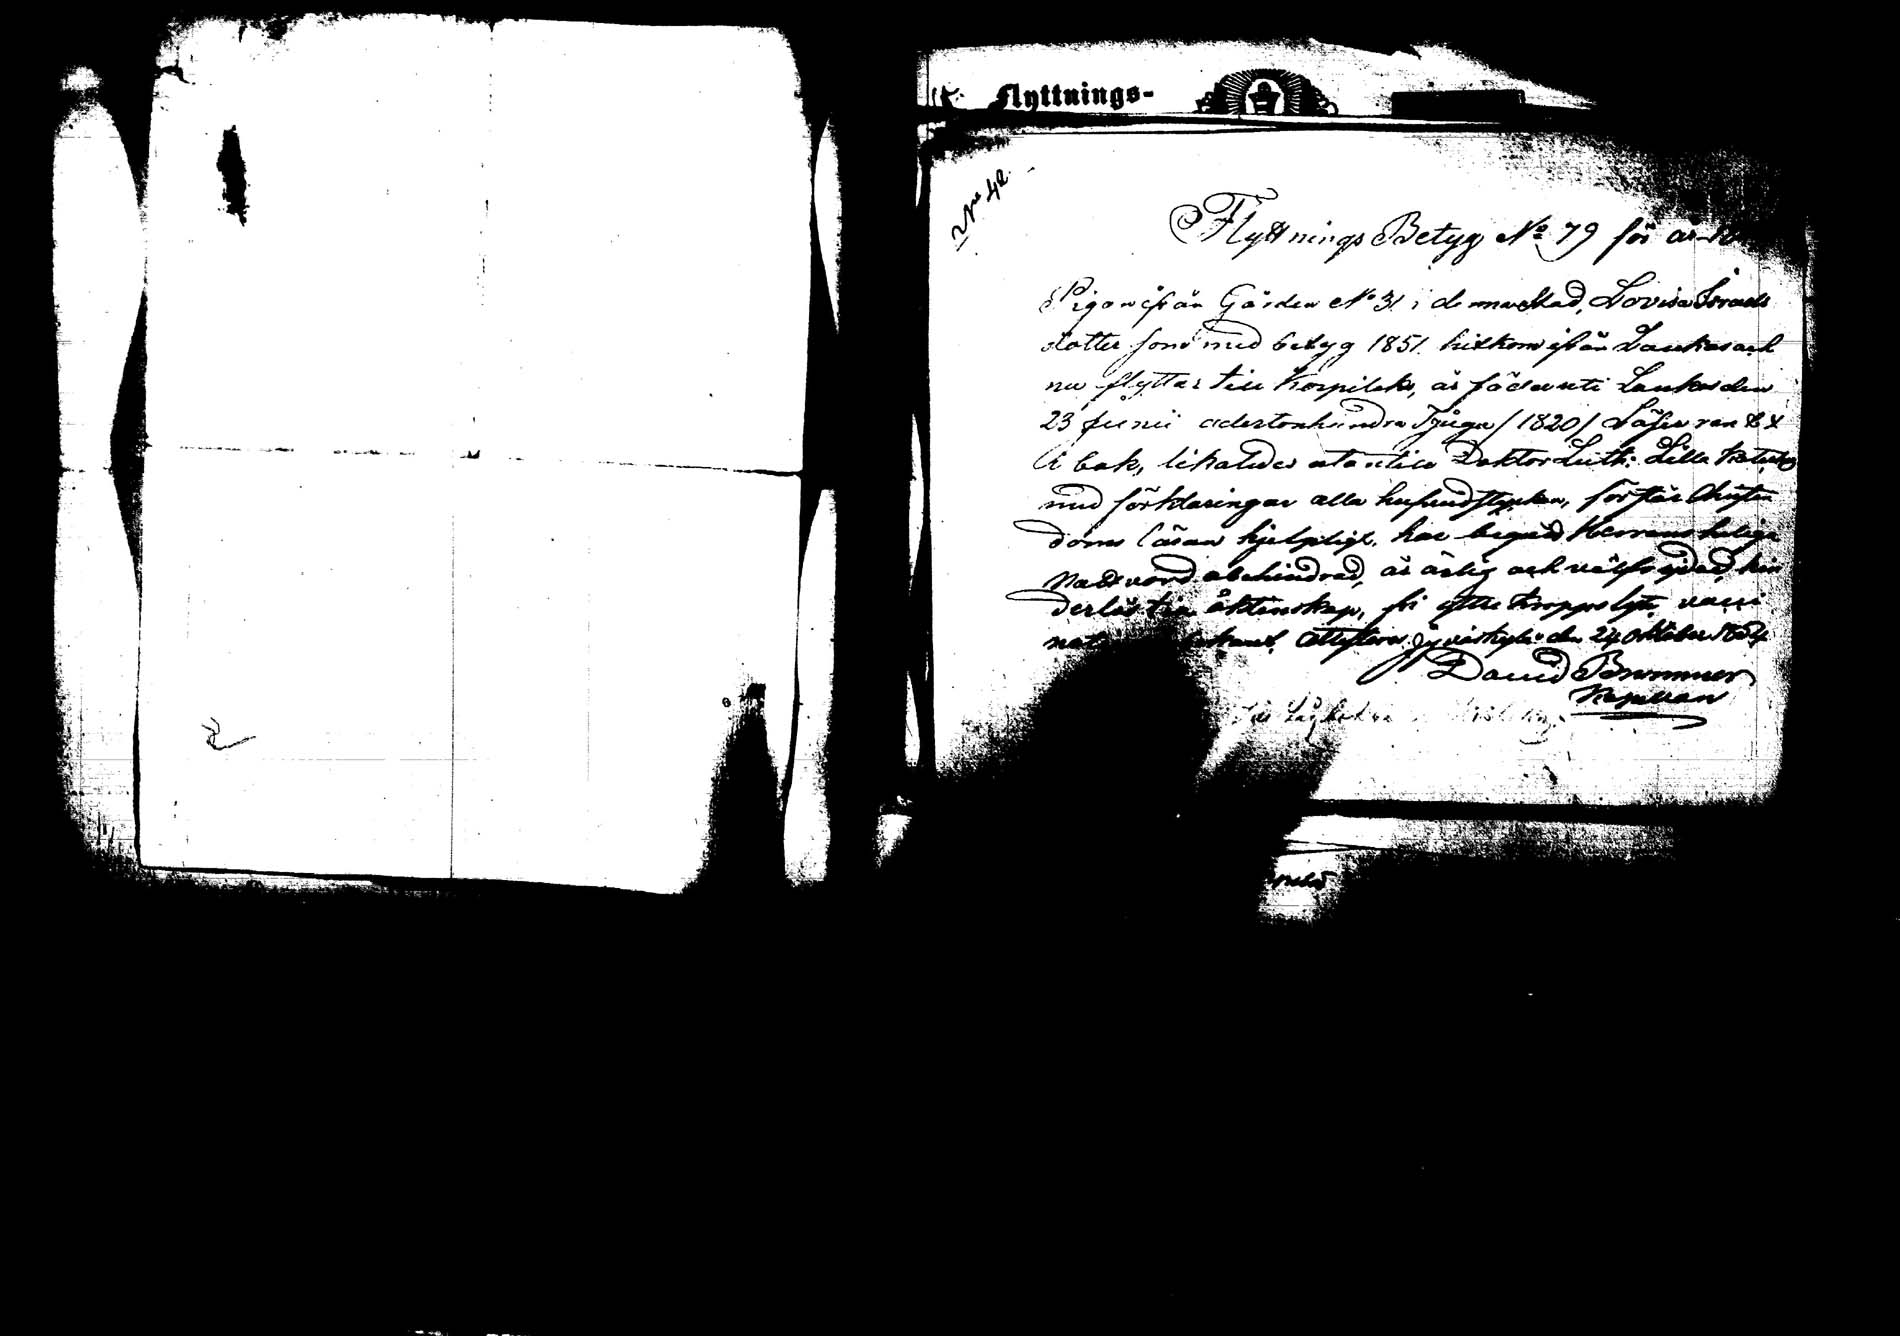 Flyttnings-
No 42.
Flyttnings Betyg No 79 för
Pigan ifrån Gården No 31 i denna Stad, Lovisa Israels
dotter som med betyg 1851 hitkom ifrån Laukas och
nu flyttar till Korpilaks, är född uti Laukas den
23 Junii adertonhundra Tjugu /1820/ Läser ran &
A bok, likaledes utantill Doktor Luth: Lilla
med förklaringar alla hufvudstycken, förstår Christen
doms läran hjelpligt, har begått Herrans heliga
Nattvard obehindrad, är ärlig och välfrejdad, hin
derlös till äktenskap, fri ifrån kroppslyte, vacci
Attesteras Jyväskylä den 24 Oktober 1854
David